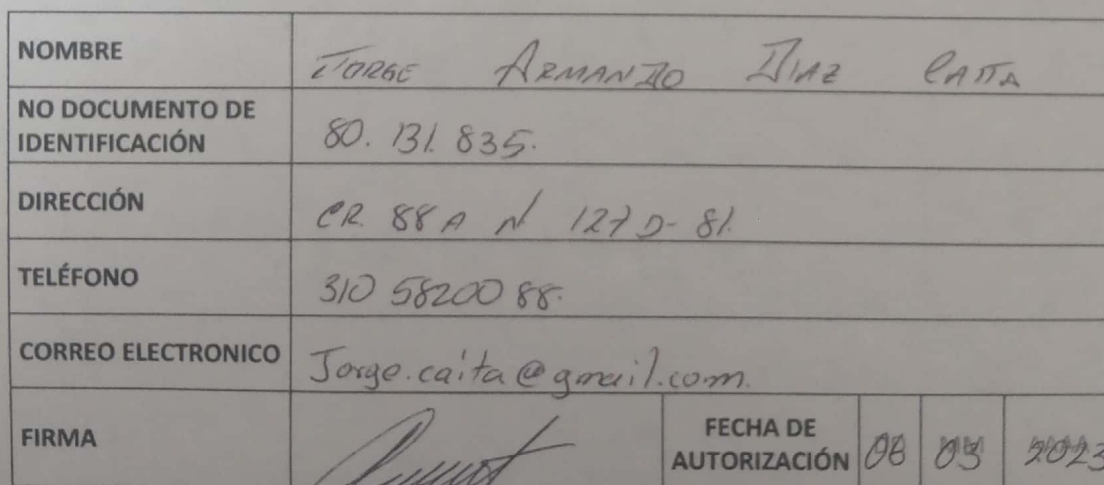 NOMBRE JORGE ARMANDO DIAZ CAITA
NO DOCUMENTO DE
IDENTIFICACIÓN 80.131.835.
DIRECCIÓN CR 88 A N 127 D-81.
TELÉFONO 310 58200 88.
CORREO ELECTRONICO Jorge.caita@gmail.com.
FIRMA
FECHA DE
AUTORIZACIÓN 2023